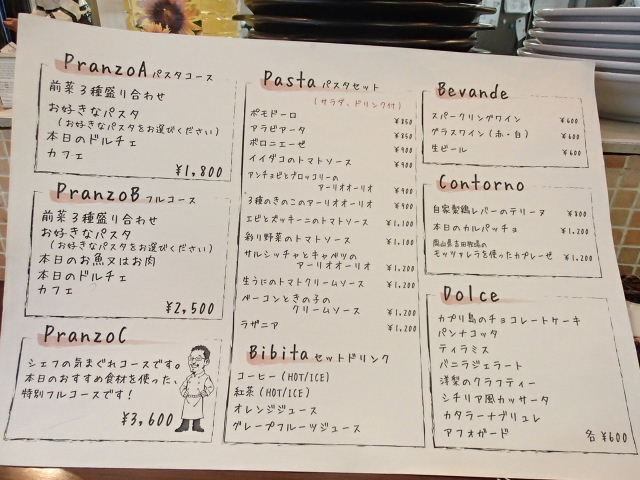 PranzoA パスタコース
前菜3種盛り合わせ
お好きなパスタ
(お好きなパスタをお選びください)
本日のドルチェ
カフェ
¥1,800
PranzoB フルコース
前菜3種盛り合わせ
お好きなパスタ
(お好きなパスタをお選びください)
本日のお魚又はお肉
本日のドルチェ
カフェ
¥2,500
PranzoC
シェフの気まぐれコースです。
本日のおすすめ食材を使った、
特別フルコースです！
¥3,600
Pasta パスタセット
(サラダ、ドリンク付)
ポモドーロ ¥850
アラビアータ ¥850
ボロニェーゼ ¥900
イイダコのトマトソース ¥900
アンチョビとブロッコリーの
アーリオオーリオ ¥900
3種のきのこのアーリオオーリオ ¥900
エビとズッキーニのトマトソース ¥1,100
彩り野菜のトマトソース ¥1,100
サルシッチャとキャベツの
アーリオオーリオ ¥1,200
生うにのトマトクリームソース ¥1,200
ベーコンときの子の
クリームソース ¥1,200
ラザニア ¥1,200
Bibita セットドリンク
コーヒー (HOT/ICE)
紅茶 (HOT/ICE)
オレンジジュース
グレープフルーツジュース
Bevande
スパークリングワイン ¥600
グラスワイン (赤・白) ¥600
生ビール ¥600
Contorno
自家製鶏レバーのテリーヌ ¥800
本日のカルパッチョ ¥1,200
岡山県吉田牧場の
モッツァレラを使ったカプレーゼ ¥1,200
Dolce
カプリ島のチョコレートケーキ
パンナコッタ
ティラミス
バニラジェラート
洋梨のクラフティー
シチリア風カッサータ
カタラーナブリュレ
アフォガード
各¥600